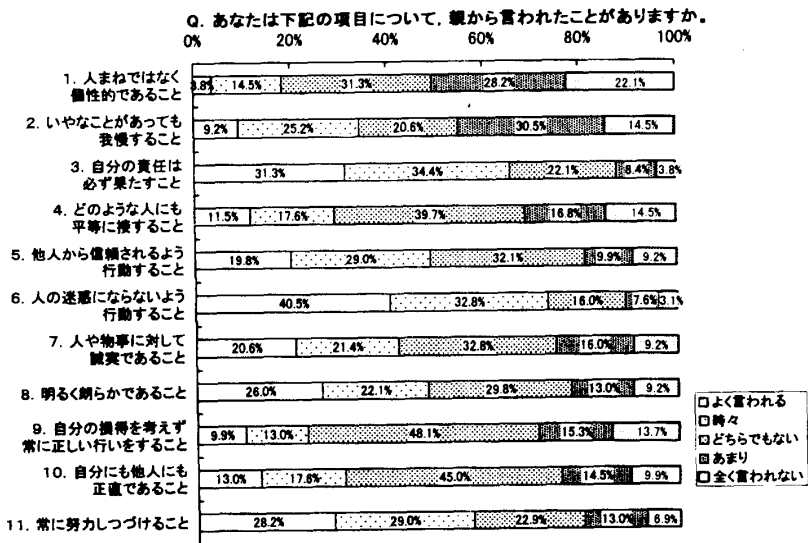 Q. あなたは下記の項目について，親から言われたことがありますか。
0% 20% 40% 60% 80% 100%
1. 人まねではなく
個性的であること
3.8% 14.5% 31.3% 28.2% 22.1%
2. いやなことがあっても
我慢すること
9.2% 25.2% 20.6% 30.5% 14.5%
3. 自分の責任は
必ず果たすこと
31.3% 34.4% 22.1% 8.4% 3.8%
4. どのような人にも
平等に接すること
11.5% 17.6% 39.7% 16.8% 14.5%
5. 他人から信頼されるよう
行動すること
19.8% 29.0% 32.1% 9.9% 9.2%
6. 人の迷惑にならないよう
行動すること
40.5% 32.8% 16.0% 7.6% 3.1%
7. 人や物事に対して
誠実であること
20.6% 21.4% 32.8% 16.0% 9.2%
8. 明るく朗らかであること
26.0% 22.1% 29.8% 13.0% 9.2%
9. 自分の損得を考えず
常に正しい行いをすること
9.9% 13.0% 48.1% 15.3% 13.7%
10. 自分にも他人にも
正直であること
13.0% 17.6% 45.0% 14.5% 9.9%
11. 常に努力しつづけること
28.2% 29.0% 22.9% 13.0% 6.9%
よく言われる
時々
どちらでもない
あまり
全く言われない